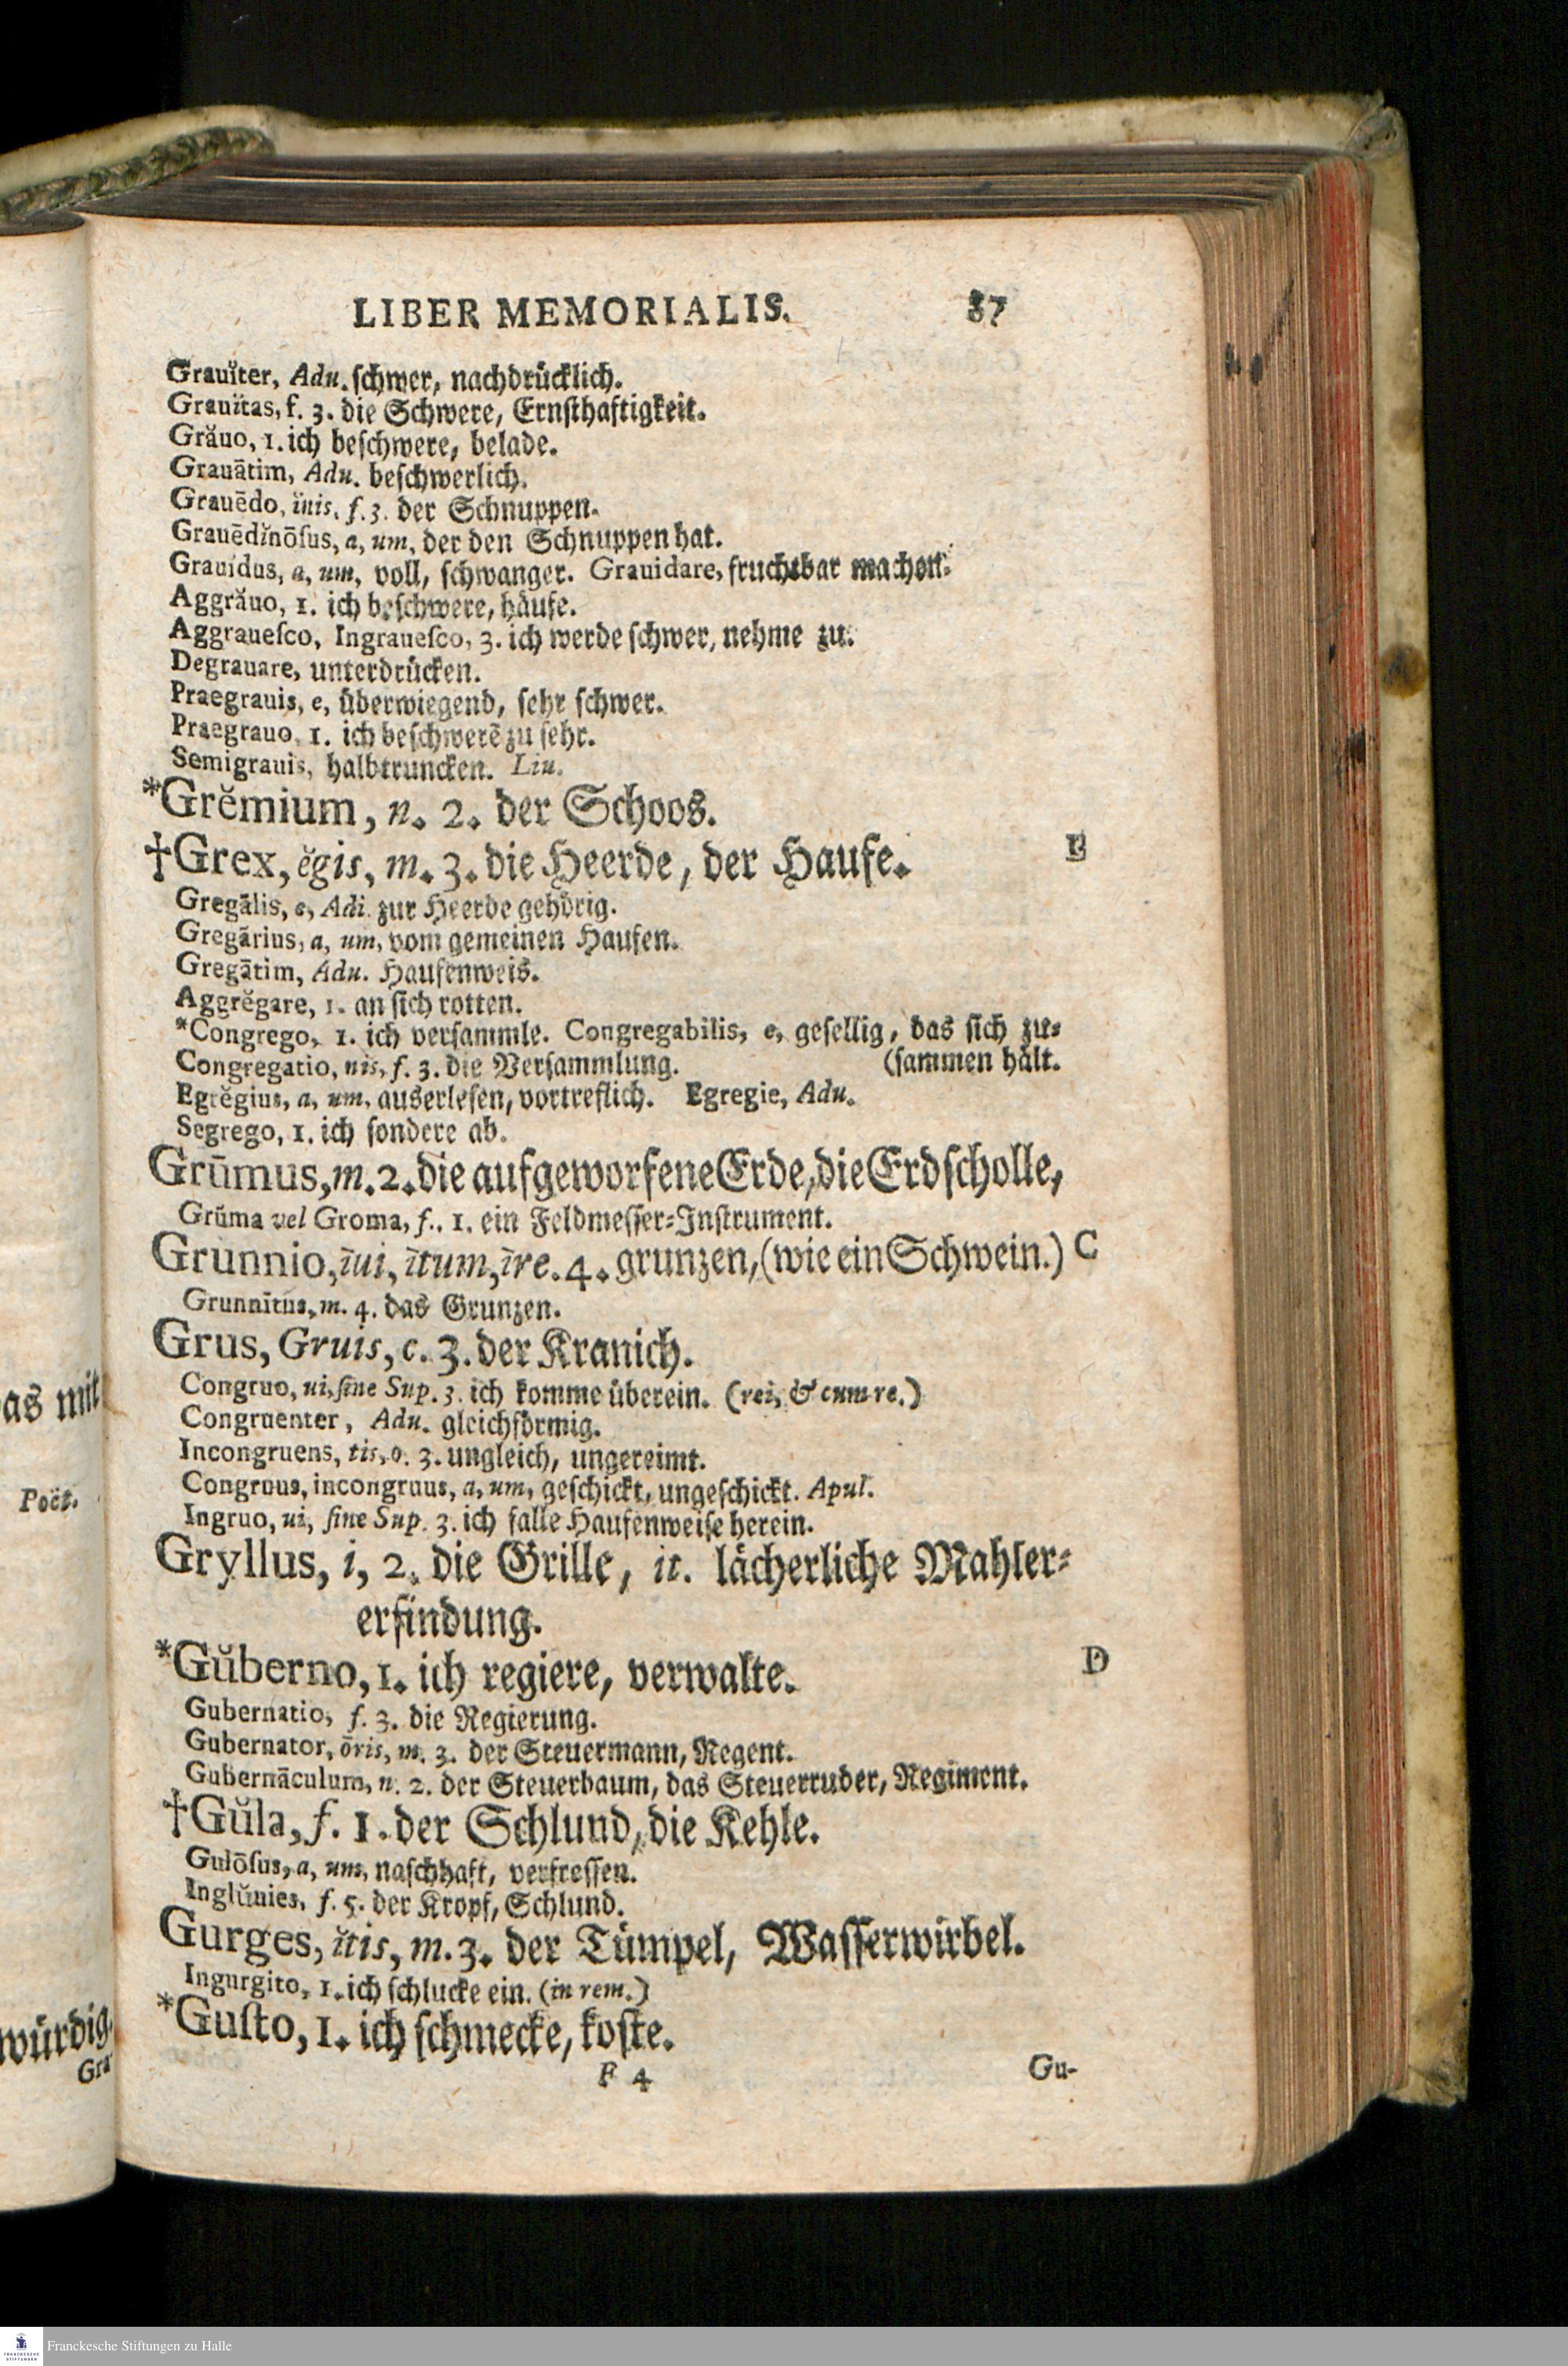 LIBER MEMORIALIS. 87
Grauĭter, Adu. ſchwer, nachdrücklich.
Grauĭtas, f. 3. die Schwere, Ernſthaftigkeit.
Grăuo, 1. ich beſchwere, belade.
Grauātim, Adu. beſchwerlich.
Grauēdo, ĭnis, f. 3. der Schnuppen.
Grauēdĭnōſus, a, um, der den Schnuppen hat.
Grauidus, a, um, voll, ſchwanger. Grauidare, fruchtbar machen.
Aggrăuo, 1. ich beſchwere, häufe.
Aggraueſco, Ingraueſco, 3. ich werde ſchwer, nehme zu.
Degrauare, unterdrücken.
Praegrauis, e, überwiegend, ſehr ſchwer.
Praegrauo, 1. ich beſchwere zu ſehr.
Semigrauis, halbtruncken. Liu.
*Grĕmium, n. 2. der Schoos.
†Grex, ĕgis, m. 3. die Heerde, der Haufe. B
Gregālis, e, Adi. zur Heerde gehörig.
Gregārius, a, um, vom gemeinen Haufen.
Gregātim, Adu. Haufenweis.
Aggrĕgare, 1. an ſich rotten.
*Congrego, 1. ich verſammle. Congregabilis, e, geſellig, das ſich zu-
Congregatio, nis, f. 3. die Verſammlung. (ſammen hält.
Egrĕgius, a, um, auserleſen, vortreflich. Egregie, Adu.
Segrego, 1. ich ſondere ab.
Grūmus, m. 2. die aufgeworfene Erde, die Erdſcholle,
Grūma vel Groma, f. 1. ein Feldmeſſer-Inſtrument.
Grunnio, īui, ītum, īre. 4. grunzen, (wie ein Schwein.) C
Grunnītus, m. 4. das Grunzen.
Grus, Gruis, c. 3. der Kranich.
Congruo, ui, ſine Sup. 3. ich komme überein. (rei, & cum re.)
Congruenter, Adu. gleichförmig.
Incongruens, tis, o. 3. ungleich, ungereimt.
Congruus, incongruus, a, um, geſchickt, ungeſchickt. Apul.
Ingruo, ui, ſine Sup. 3. ich falle Haufenweiſe herein.
Gryllus, i, 2. die Grille, it. lächerliche Mahler-
erfindung.
*Gŭberno, 1. ich regiere, verwalte. D
Gubernatio, f. 3. die Regierung.
Gubernator, ōris, m. 3. der Steuermann, Regent.
Gubernāculum, n. 2. der Steuerbaum, das Steuerruder, Regiment.
†Gŭla, f. 1. der Schlund, die Kehle.
Gulōſus, a, um, naſchhaft, verfreſſen.
Inglŭuies, f. 5. der Kropf, Schlund.
Gurges, ĭtis, m. 3. der Tümpel, Waſſerwirbel.
Ingurgito, 1. ich ſchlucke ein. (in rem.)
*Guſto, 1. ich ſchmecke, koſte.
F 4 Gu-
as mit
Poët.
würdig.
Gra
Franckesche Stiftungen zu Halle
FRANCKESCHE
STIFTUNGEN